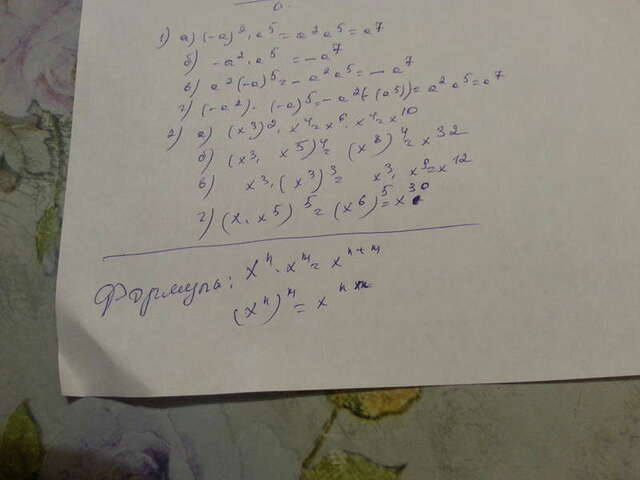 1) а) (-a)², a⁵ = a² a⁵ = a⁷
б) -a², a⁵ = -a⁷
в) a² (-a)⁵ = -a² a⁵ = -a⁷
г) (-a²)·(-a)⁵ = -a² (-(a⁵)) = a² a⁵ = a⁷
2) а) (x3)² · x⁴ = x⁶ · x⁴ = x¹⁰
б) (x³, x⁵)⁴ = (x⁸)⁴ = x³²
в) x³ · (x³)³ = x³, x⁹ = x¹²
г) (x · x⁵)⁵ = (x⁶)⁵ = x³⁰
Формула: xⁿ · xᵐ = xⁿ⁺ᵐ
(xⁿ)ᵐ = x